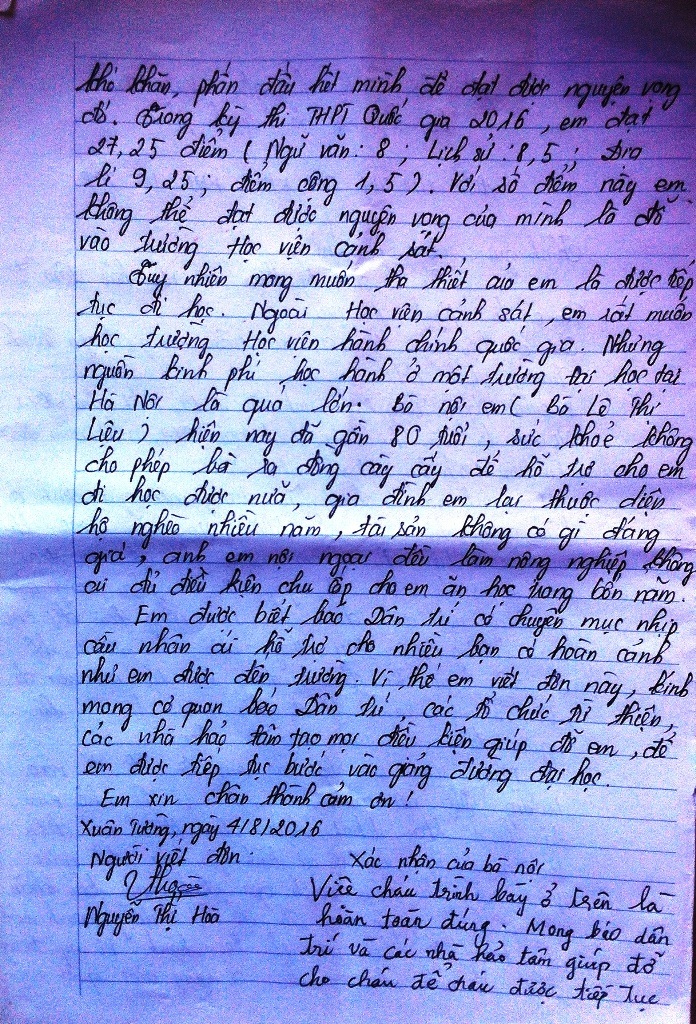 khó khăn, phấn đấu hết mình để đạt được nguyện vọng
đó. Trong kỳ thi THPT Quốc gia 2016, em đạt
27,25 điểm ( Ngữ văn: 8 ; Lịch sử : 8,5 ; Địa
lí 9,25 ; điểm cộng 1,5 ). Với số điểm này em
không thể đạt được nguyện vọng của mình là đỗ
vào trường Học viện cảnh sát.
Tuy nhiên mong muốn tha thiết của em là được tiếp
tục đi học. Ngoài Học viện cảnh sát, em rất muốn
học trường Học viện hành chính quốc gia. Nhưng
nguồn kinh phí học hành ở một trường đại học tại
Hà Nội là quá lớn. Bà nội em ( Bà Lê Thị
Liệu ) hiện nay đã gần 80 tuổi, sức khoẻ không
cho phép bà ra đồng cày cấy để hỗ trợ cho em
đi học được nữa, gia đình em lại thuộc diện
hộ nghèo nhiều năm, tài sản không có gì đáng
giá, anh em nội ngoại đều làm nông nghiệp không
ai đủ điều kiện chu cấp cho em ăn học trong bốn năm.
Em được biết báo Dân trí có chuyên mục nhịp
cầu nhân ái hỗ trợ cho nhiều bạn có hoàn cảnh
như em được đến trường. Vì thế em viết đơn này, kính
mong cơ quan báo Dân trí, các tổ chức từ thiện,
các nhà hảo tâm tạo mọi điều kiện giúp đỡ em, để
em được tiếp tục bước vào giảng đường đại học.
Em xin chân thành cảm ơn !
Xuân Tường, ngày 4/8/2016
Người viết đơn Xác nhận của bà nội
Nguyễn Thị Hoà Việc cháu trình bày ở trên là
hoàn toàn đúng. Mong báo dân
trí và các nhà hảo tâm giúp đỡ
cho cháu để cháu được tiếp tục